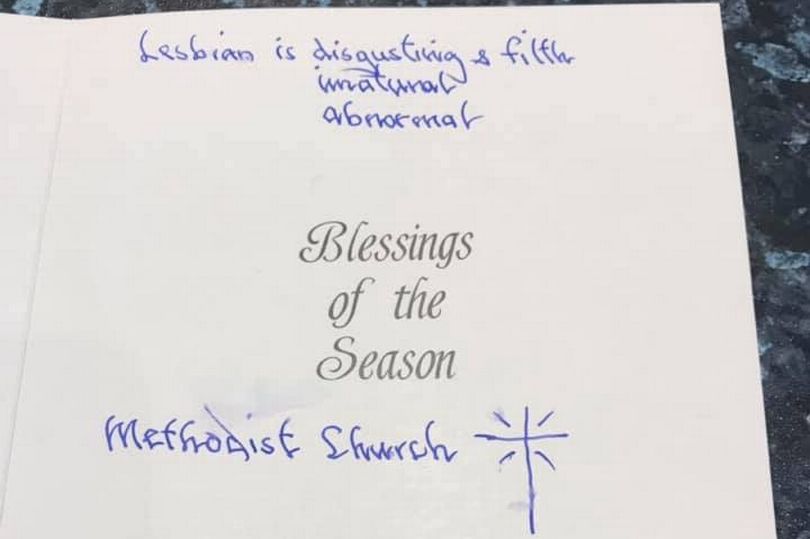 Lesbian is disgusting & filth
unatural
abnormal
Blessings
of the
Season
Methodist Church